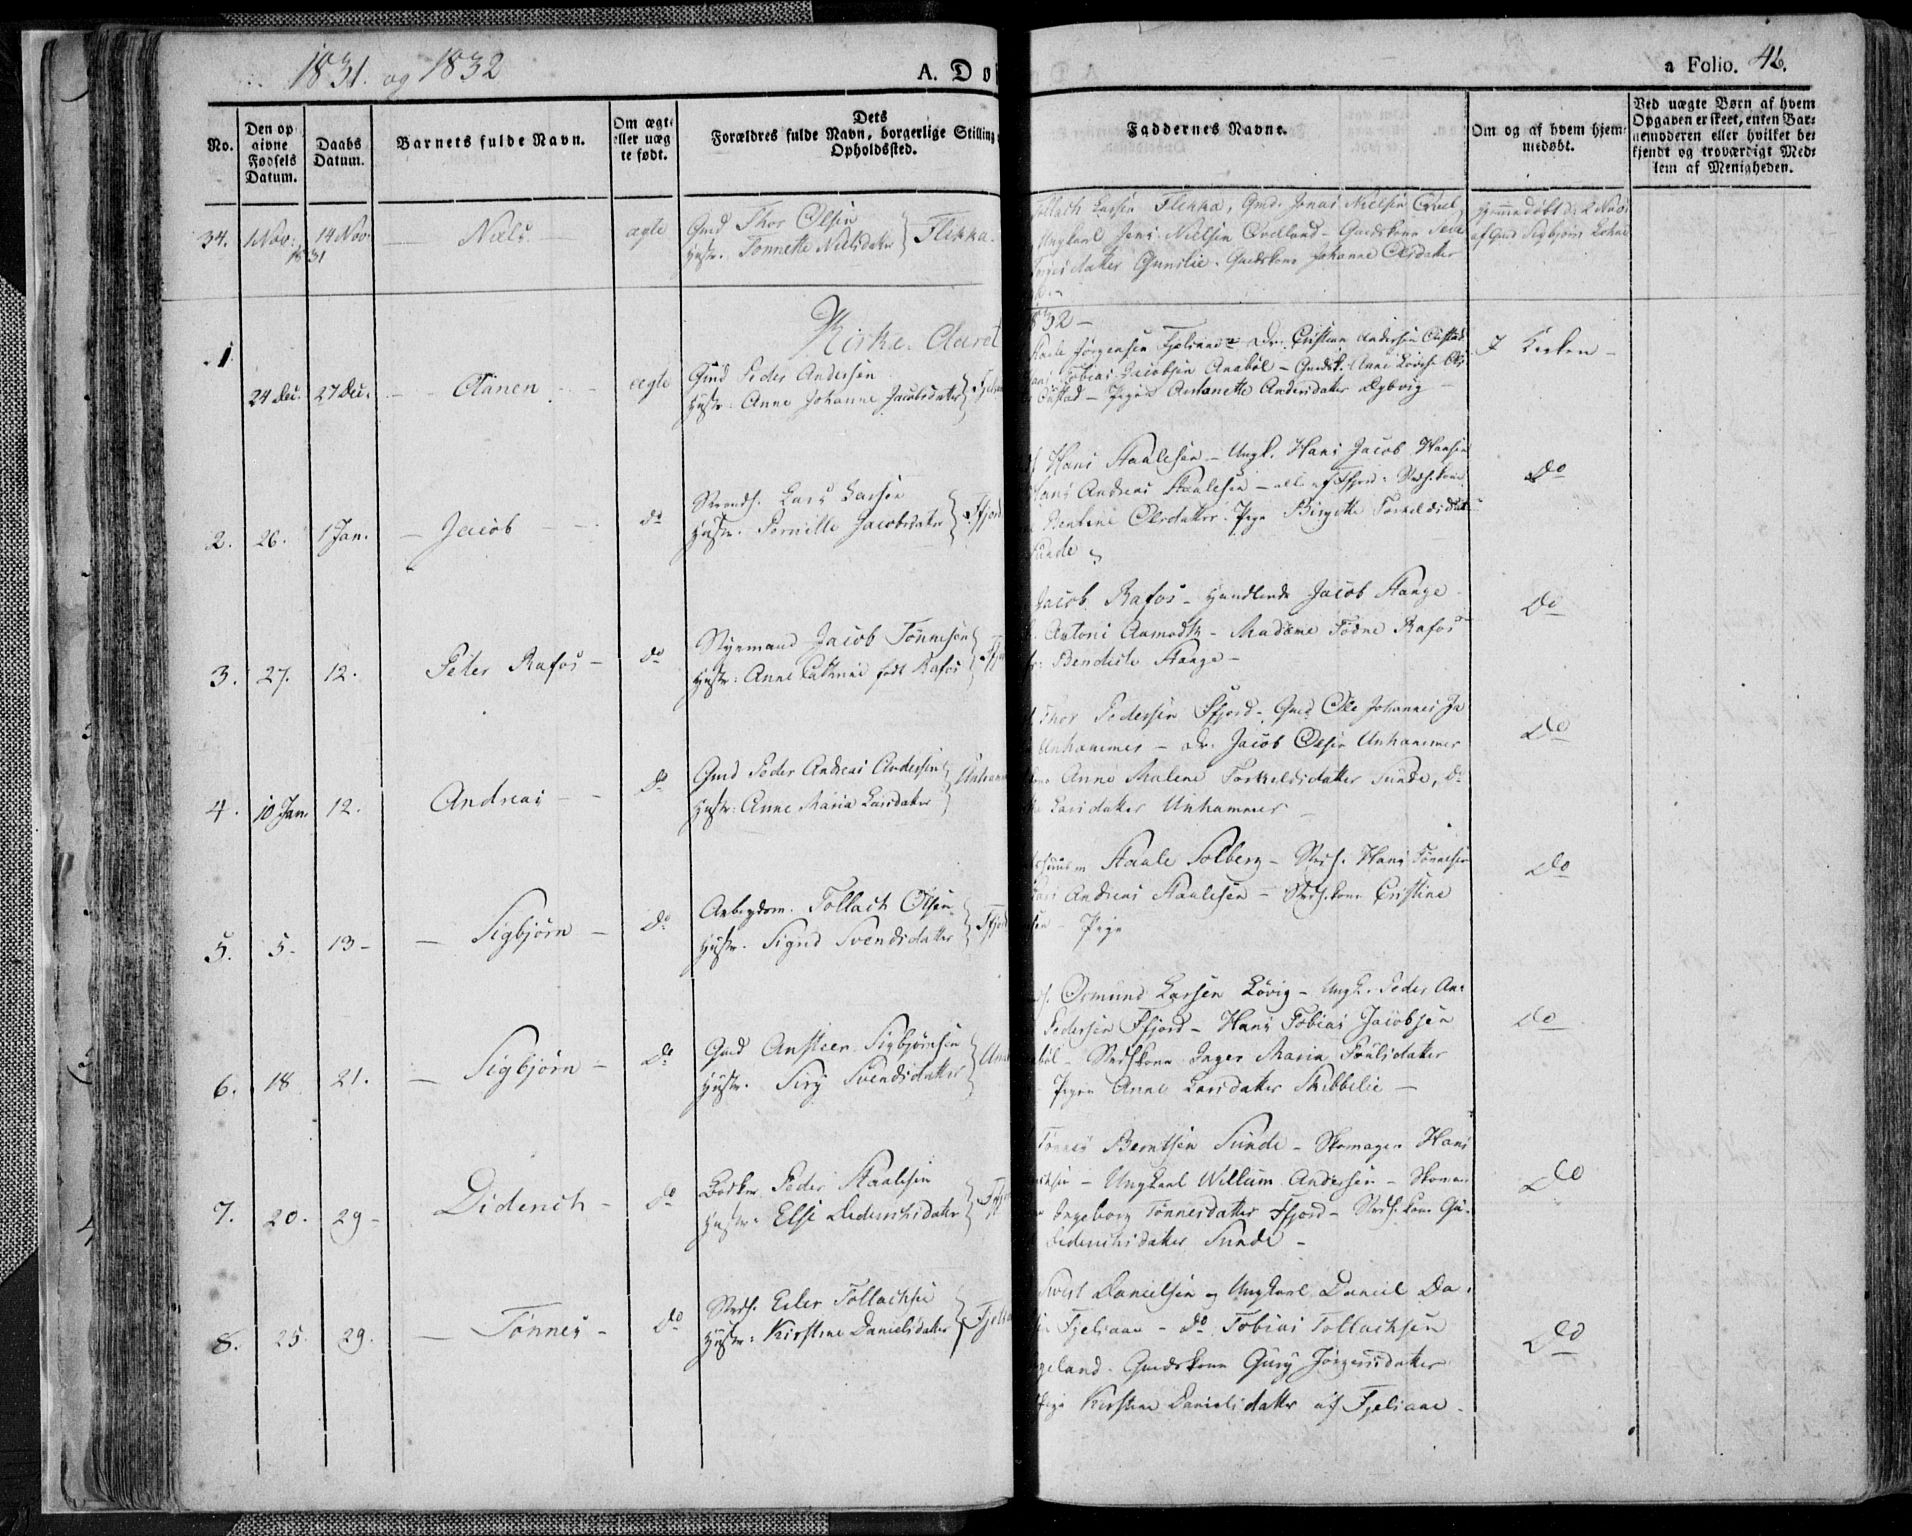 1831. og 1832
A. Do
a Folio. 46.
No.
Den op
givne
Fødsels
Datum.
Daabs
Datum.
Barnets fulde Navn.
Om ægte
eller uæg
te født.
Dets
Forældres fulde Navn, borgerlige Stilling
Opholdssted.
Faddernes Navne.
Om og af hvem hjem
medøbt.
Ved uægte Børn af hvem
Opgaven er skeet, enten Bar-
nemoderen eller hvilket be-
kjendt og troværdigt Med-
lem af Menigheden.
34. 1 Nov: 14 Nov: 1831 — Niels — ægte
Gmd Thor Olsen
Hustr. Tonnette Nielsdatter } Flikka.
Tollach Larsen Flikka, Gmd. Jonas Nielsen
Ungkarl Jens Nielsen Qvelland - Gmdskone
datter Gunilie. Gmdskone Johanne Olsdatter
Hjemmedøbt d. 2 Nov:
af Gmd Sigbjørn
Kirke-Aaret
1832 —
1 24 Dec. 27 Dec. — Aanen — ægte
Gmd Peder Andersen
Hustr: Anne Johanne Jacobsdatter }
Jørgensen - Do. Christian Andersen
Tobias Jacobsen Anabøl - Anne
- Pige Antonette Andersdatter Dybvig —
I Kirken —
2. 26. 1 Jan. — Jacob — do
Strands. Lars Larsen
Hustr. Pernille Jacobsdatter } Ffjord
Hans Staalesen - Ungk. Hans Jacob Hansen
Hans Andreas Staalesen - alle af Ffjord -
Bentine Olsdatter. Pige Birgitte Torkeldsdat
Sunde
Do
3. 27. 12. Peter Rafos — do
Styrmand Jacob Tønnesen
Hustr: Anne Cathrine født Rafos }
Jacob Rafos - Handlende Jacob Stange -
Antoni Aamodt - Madame Todne Rafos
Bendicte Stange —
Do
4. 10 Jan. 12. Andreas — do
Gmd Peder Andreas Andersen
Hustr: Anne Maria Larsdatter }
Thor Pedersen Ffjord - Gmd Ole Johannes
Unhammer - Do. Jacob Olsen Unhammer
Anne Malene Torkeldsdatter Sunde, Do
Larsdatter Unhammer —
Do
5. 5. 13 — Sigbjørn — do
Arbeydsm. Tollach Olsen
Hustr. Sigrid Svendsdatter } Ffjord
Staale Solberg - Strds. Hans Tønnesen
Andreas Staalesen - Strds.kone Cristine
- Pige
Do
6. 18 21. — Sigbjørn — do
Gmd Ansteen Sigbjørnsen
Hustr. Siry Svendsdatter }
Osmund Larsen Lövig - Ungk. Peder An-
Pedersen Ffjord - Hans Tobias Jacobsen
- Strdskone Inger Maria
Pigen Anne Larsdatter Skibbelie —
Do
7. 20. 29 — Diderich — do
Bødker Peder Staalesen
Hustr. Elsi Dederichsdatter }
Tønnes Berntsen Sunde - Skomager Hans
- Ungkarl Willum Andersen -
Ingeborg Tønnesdatter Ffjord - Strds.kone
Dederichsdatter Sunde —
Do
8. 25. 29. — Tønnes — do
Strds. Eiler Tollachsen
Hustr: Kirstine Danielsdatter }
Danielsen og Ungkarl Daniel Da-
Fjelsaae - do Tobias Tollachsen
Gmdskone Gury Jørgensdatter
Pige Kirstine Danielsdatter af Fjelsaae —
Do